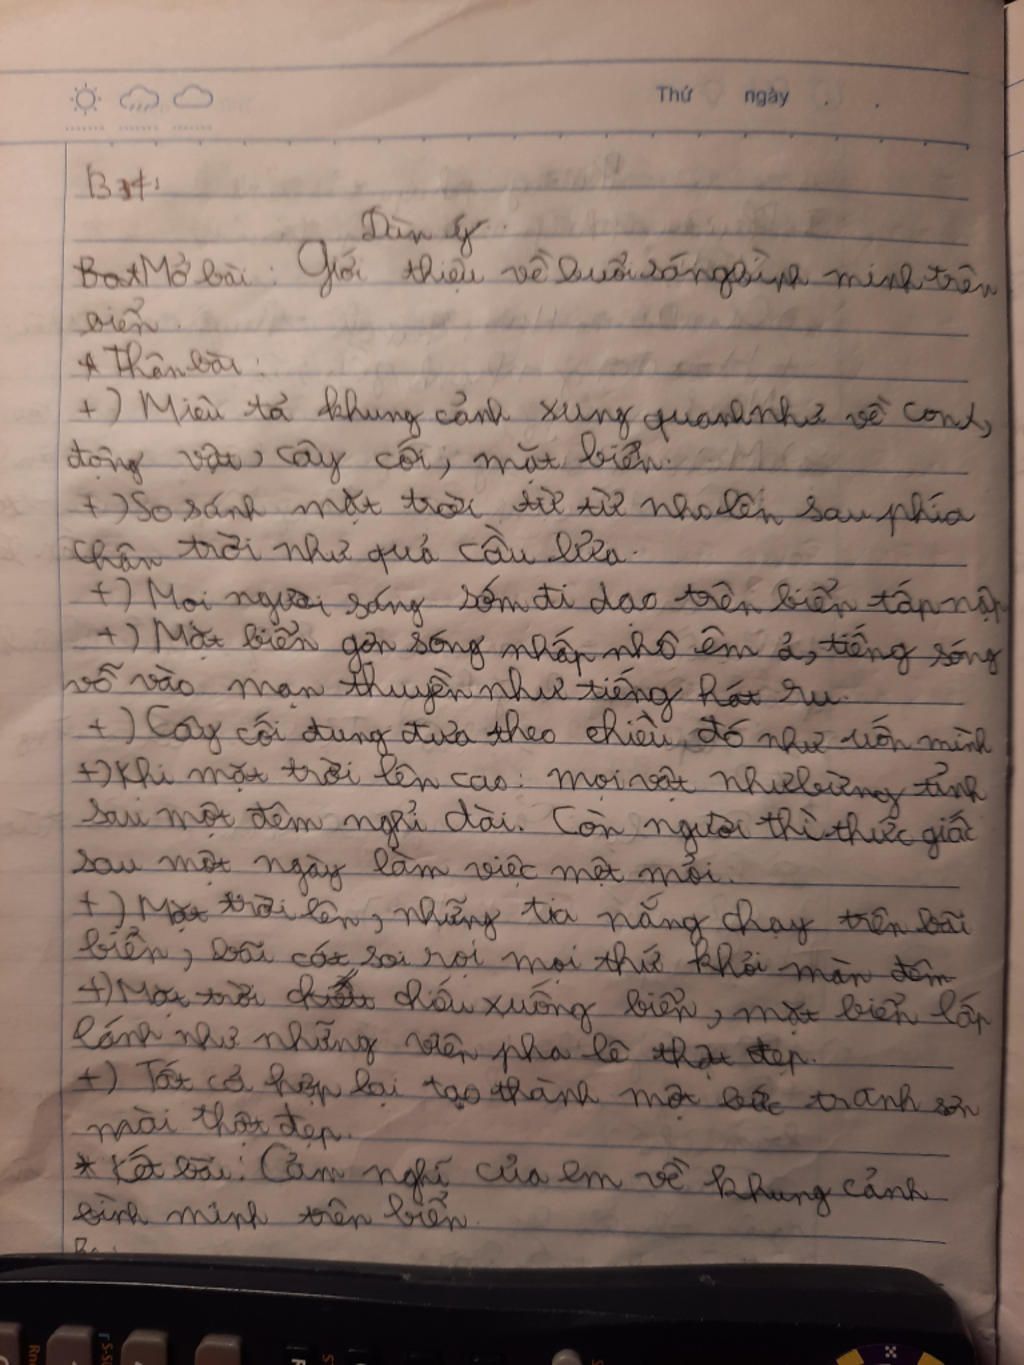 Thứ ngày
Dàn ý
Mở bài: Giới thiệu về buổi sáng bình minh trên
biển.
* Thân bài:
+) Miêu tả khung cảnh xung quanh như về con
động vật, cây cối, mặt biển.
+) So sánh mặt trời từ từ nhô lên sau phía
chân trời như quả cầu lửa.
+) Mọi người sáng sớm đi dạo trên biển tấp nập
+) Mặt biển gợn sóng nhấp nhô êm ả, tiếng sóng
vỗ vào mạn thuyền như tiếng hát ru.
+) Cây cối đung đưa theo chiều đó như uốn mình
+) Khi mặt trời lên cao: mọi vật như bừng tỉnh
sau một đêm nghỉ dài. Còn người thì thức giấc
sau một ngày làm việc mệt mỏi.
+) Mặt trời lên, những tia nắng chạy trên bãi
biển, bãi cát soi rọi mọi thứ khỏi màn đêm
+) Mặt trời chiếu xuống biển, mặt biển lấp
lánh như những viên pha lê thật đẹp.
+) Tất cả hợp lại tạo thành một bức tranh sơn
mài thật đẹp.
* Kết bài: Cảm nghĩ của em về khung cảnh
bình minh trên biển.